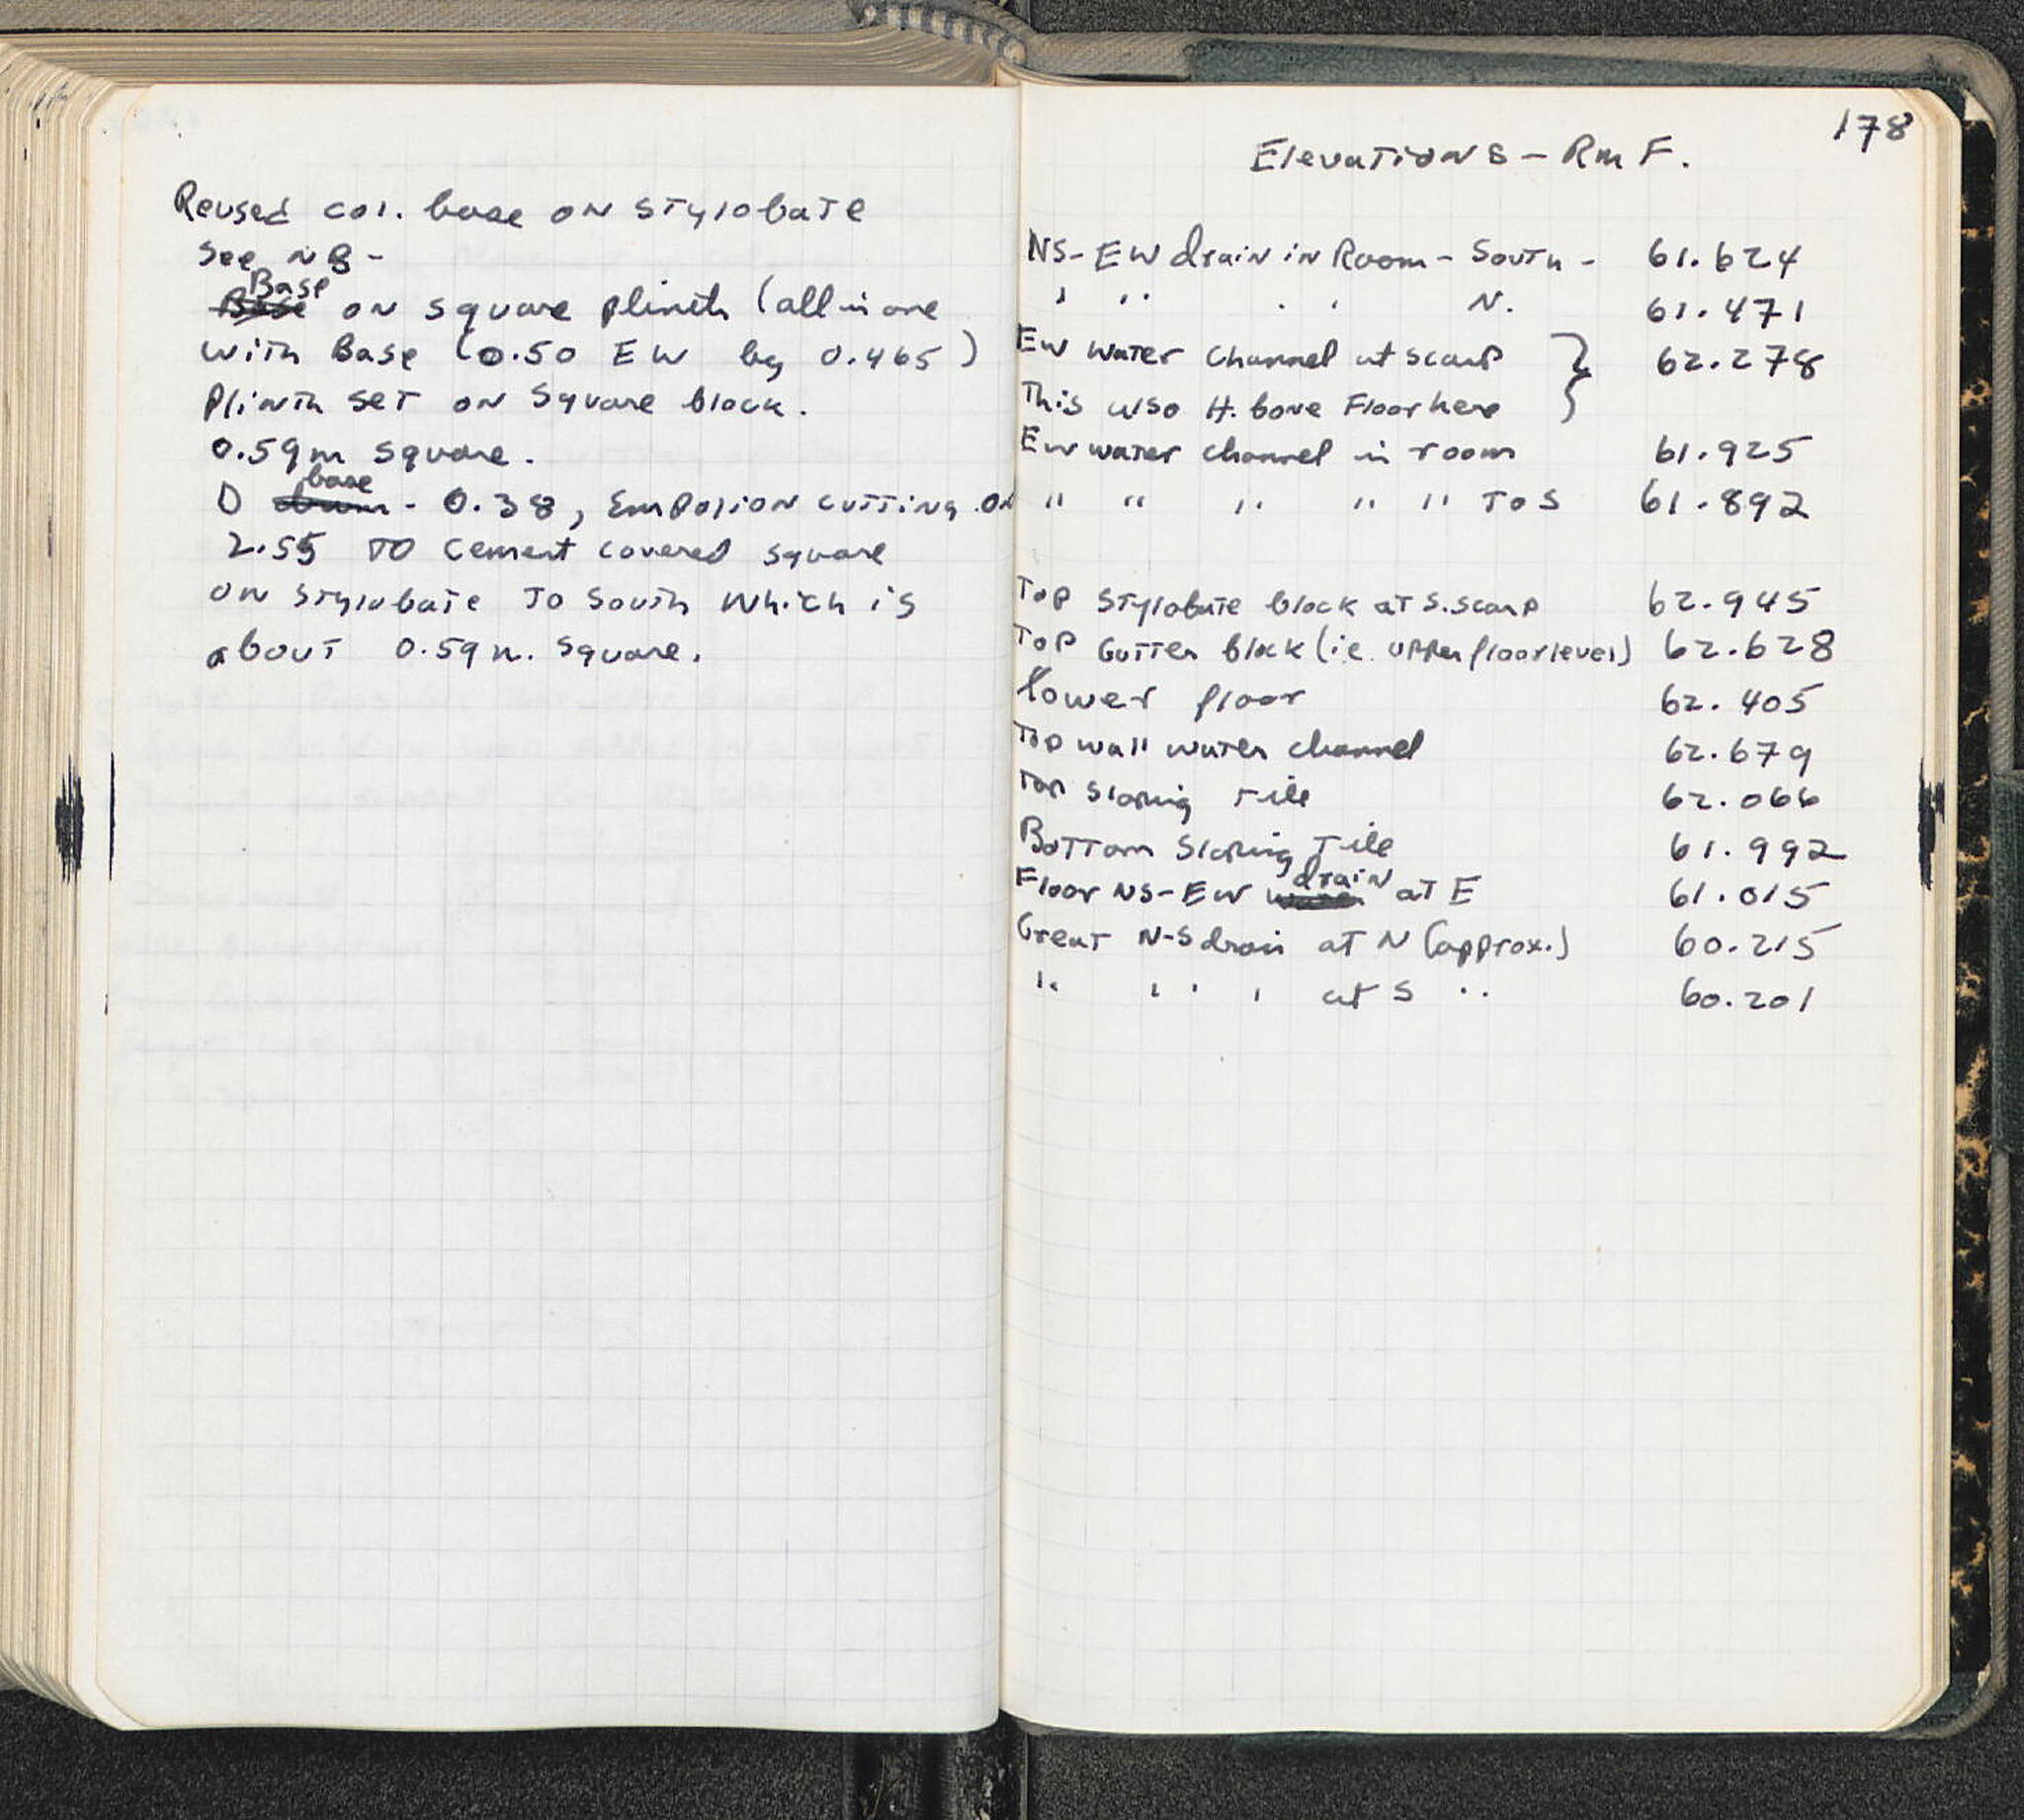 Reused col. base on stylobate
See NB -
Base
Base on square plinth (all in one
with Base (0.50 EW by 0.465)
Plinth set on square block.
0.59m square.
base
D drum - 0.38, Empolion cutting on
2.55 to cement covered square
on stylobate to South which is
about 0.59m. square.
178
Elevations - Rm F.
NS-EW drain in Room - South - 61.624
" " " " N. 61.471
EW water channel at scarp } 62.278
This also H. bove Floor here }
EW water channel in room 61.925
" " " " " To S 61.892
Top stylobate block at S. scarp 62.945
Top Gutter block (i.e. upper floor level) 62.628
lower floor 62.405
Top wall water channel 62.679
Top sloping tile 62.066
Bottom sloping Tile 61.992
drain
Floor NS-EW at E 61.015
Great N-S drain at N (approx.) 60.215
" " " " at S " 60.201